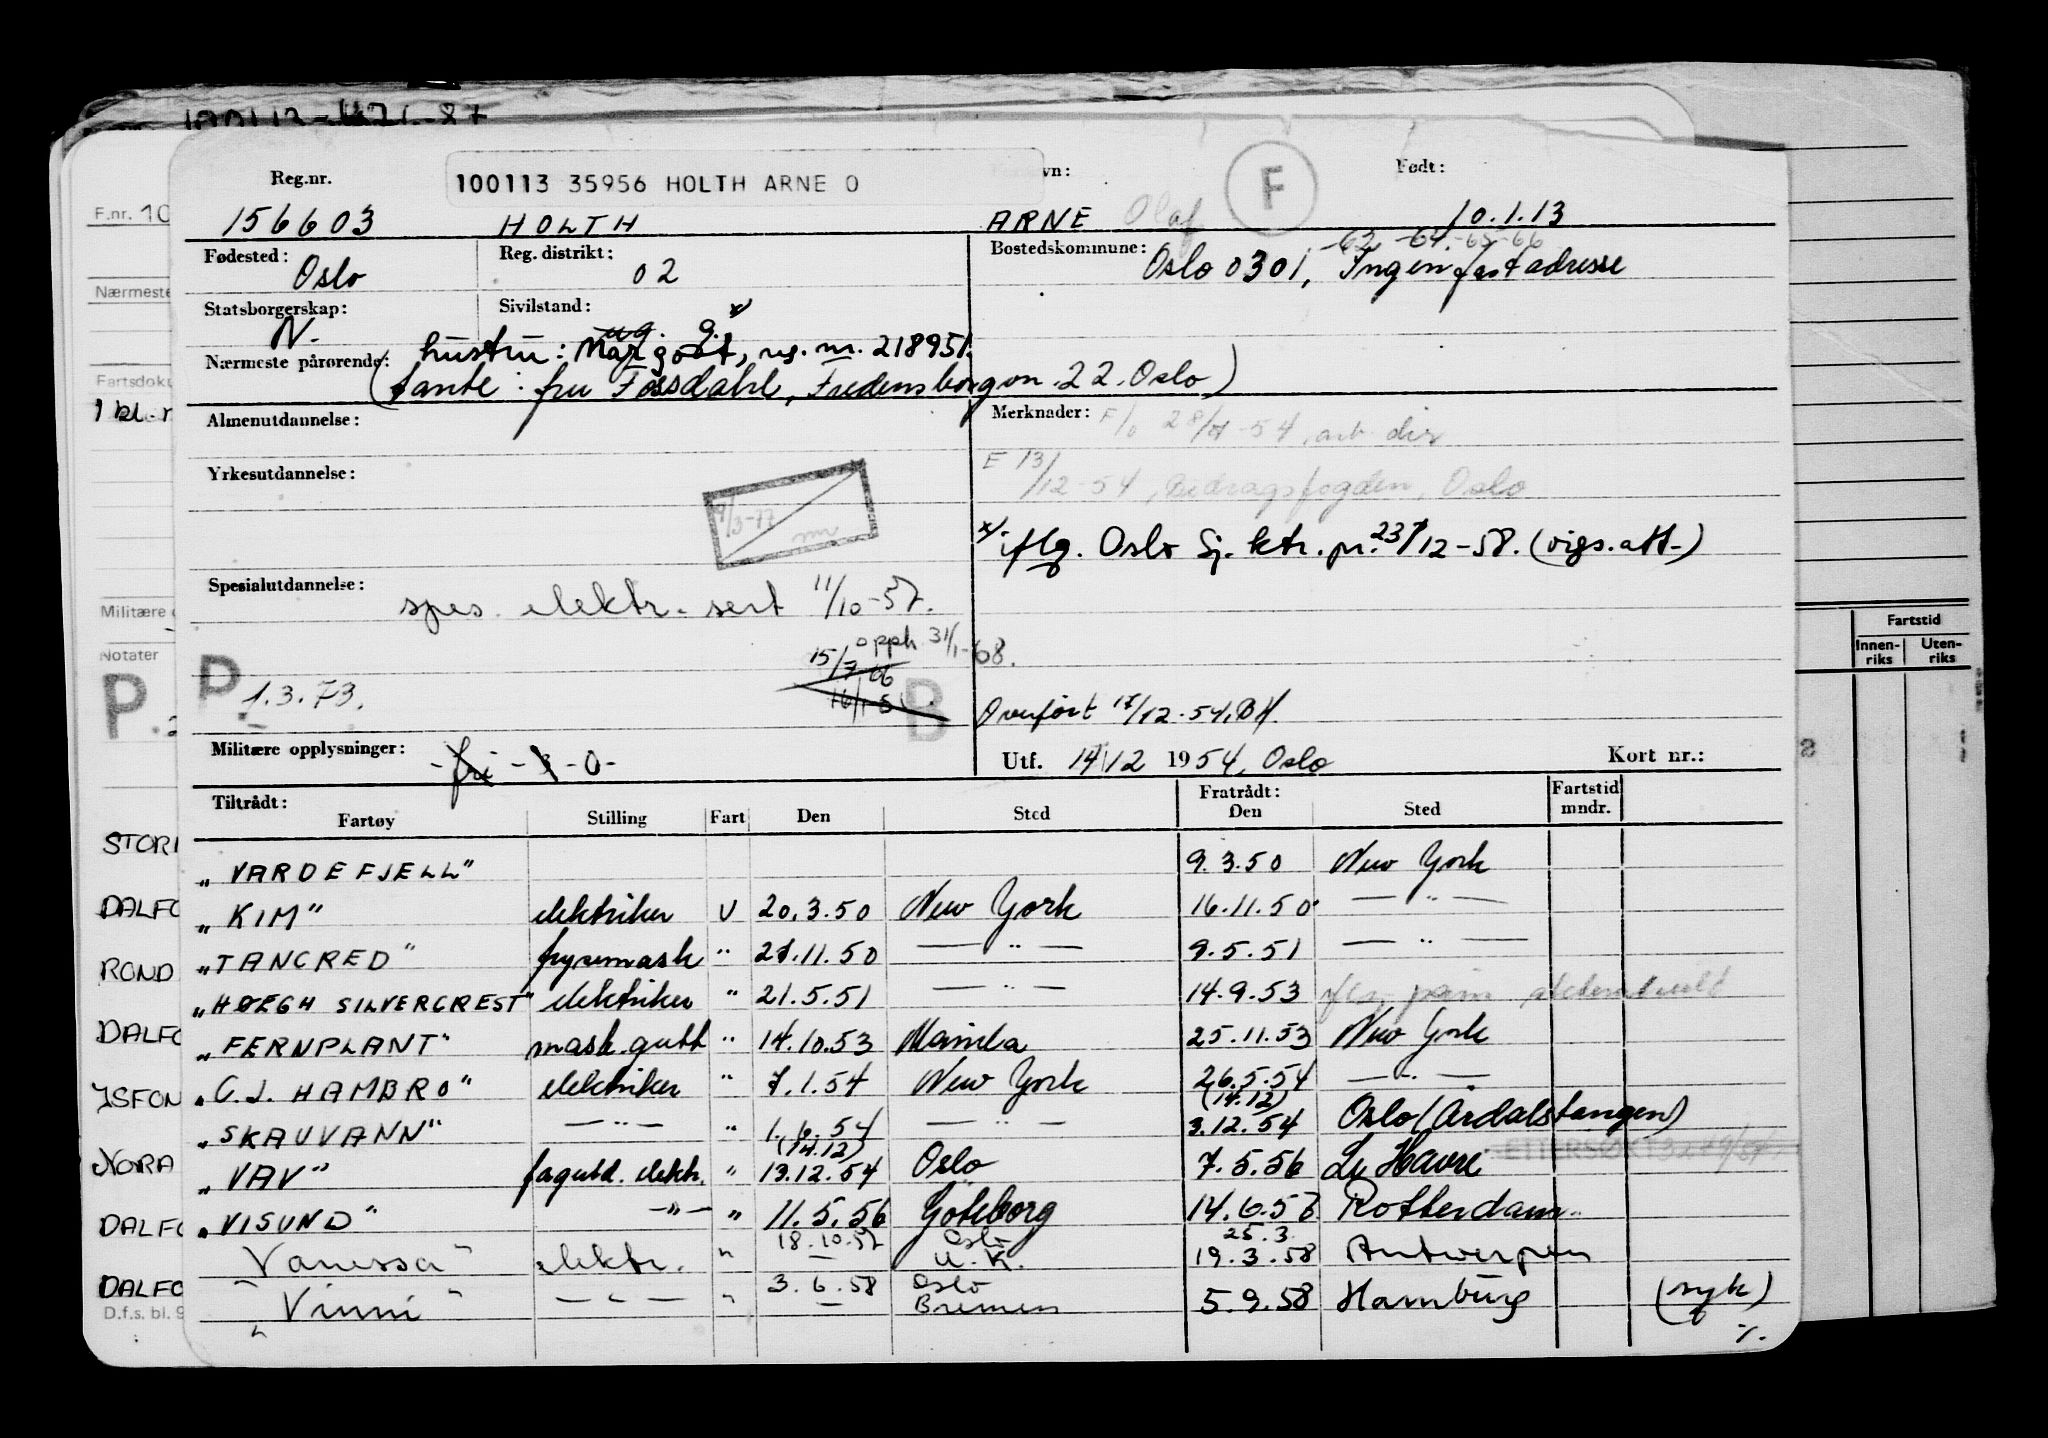 100113 35956 HOLTH ARNE O
F
Reg.nr. vn: Født:
156603 HOLTH ARNE Olaf 10.1.13
F.nr. 10
-62 -64 -65 -66
Fødested: Oslo Reg. distrikt: 02 Bostedskommune: Oslo 0301, Ingen fast adresse
Nærmeste
Statsborgerskap: N. Sivilstand: ug. g. x/
Nærmeste pårørende: hustru: Margot, reg. nr. 218951.
(tante: fru Fossdahl, Fredensborgvn. 22. Oslo)
Fartsdoku
1 kl.
Almenutdannelse: Merknader: F/o 28/ -54, arb. dir
Yrkesutdannelse: E 13/12-54, Bidragsfogden, Oslo
9/3-77
x/ iflg. Oslo Sj. ktr. pr. 23/12-58. (vigs.att.)
Spesialutdannelse: spes. elektr. sert 11/10-57.
Militære
Notater
opph 31/1-68.
15/7 66
16/1-5
P. 1.3.73. B
P.
Overført 17/12-54. BH.
Militære opplysninger: -fri - 3 -0-
Utf. 14/12 1954, Oslo Kort nr.:
Fartstid
Innen-riks Uten-riks
Tiltrådt: Fratrådt: Fartstid
Fartøy Stilling Fart Den Sted Den Sted mndr.
„VARDEFJELL" 9.3.50 New York
„KIM" elektriker U 20.3.50 New York 16.11.50 — " —
„TANCRED" frysemask " 21.11.50 — " — 9.5.51 — " —
„HØEGH SILVERCREST" elektriker " 21.5.51 — " — 14.9.53
„FERNPLANT" mask.gutt " 14.10.53 Manila 25.11.53 New York
„C.J. HAMBRO" elektriker " 7.1.54 New York 26.5.54 — " —
„SKAUVANN" — " — " 1.6.54 — " — (14.12) 3.12.54 Oslo (Årdalstangen)
„VAV" fagutd. elektr. " (14.12) 13.12.54 Oslo 7.5.56 Le Havre
„VISUND" — " — " 11.5.56 Göteborg 14.6.57 Rotterdam
„Vanessa" elektr. " 18.10.57 Oslo U.K. 25.3 19.3.58 Antwerpen
„Vinni" — " — " 3.6.58 Oslo Bremen 5.9.58 Hamburg (syk)
STORI
DALFO
ROND
DALFO
ISFON
NORA
DALFO
DALFO
D.f.s. bl. 9